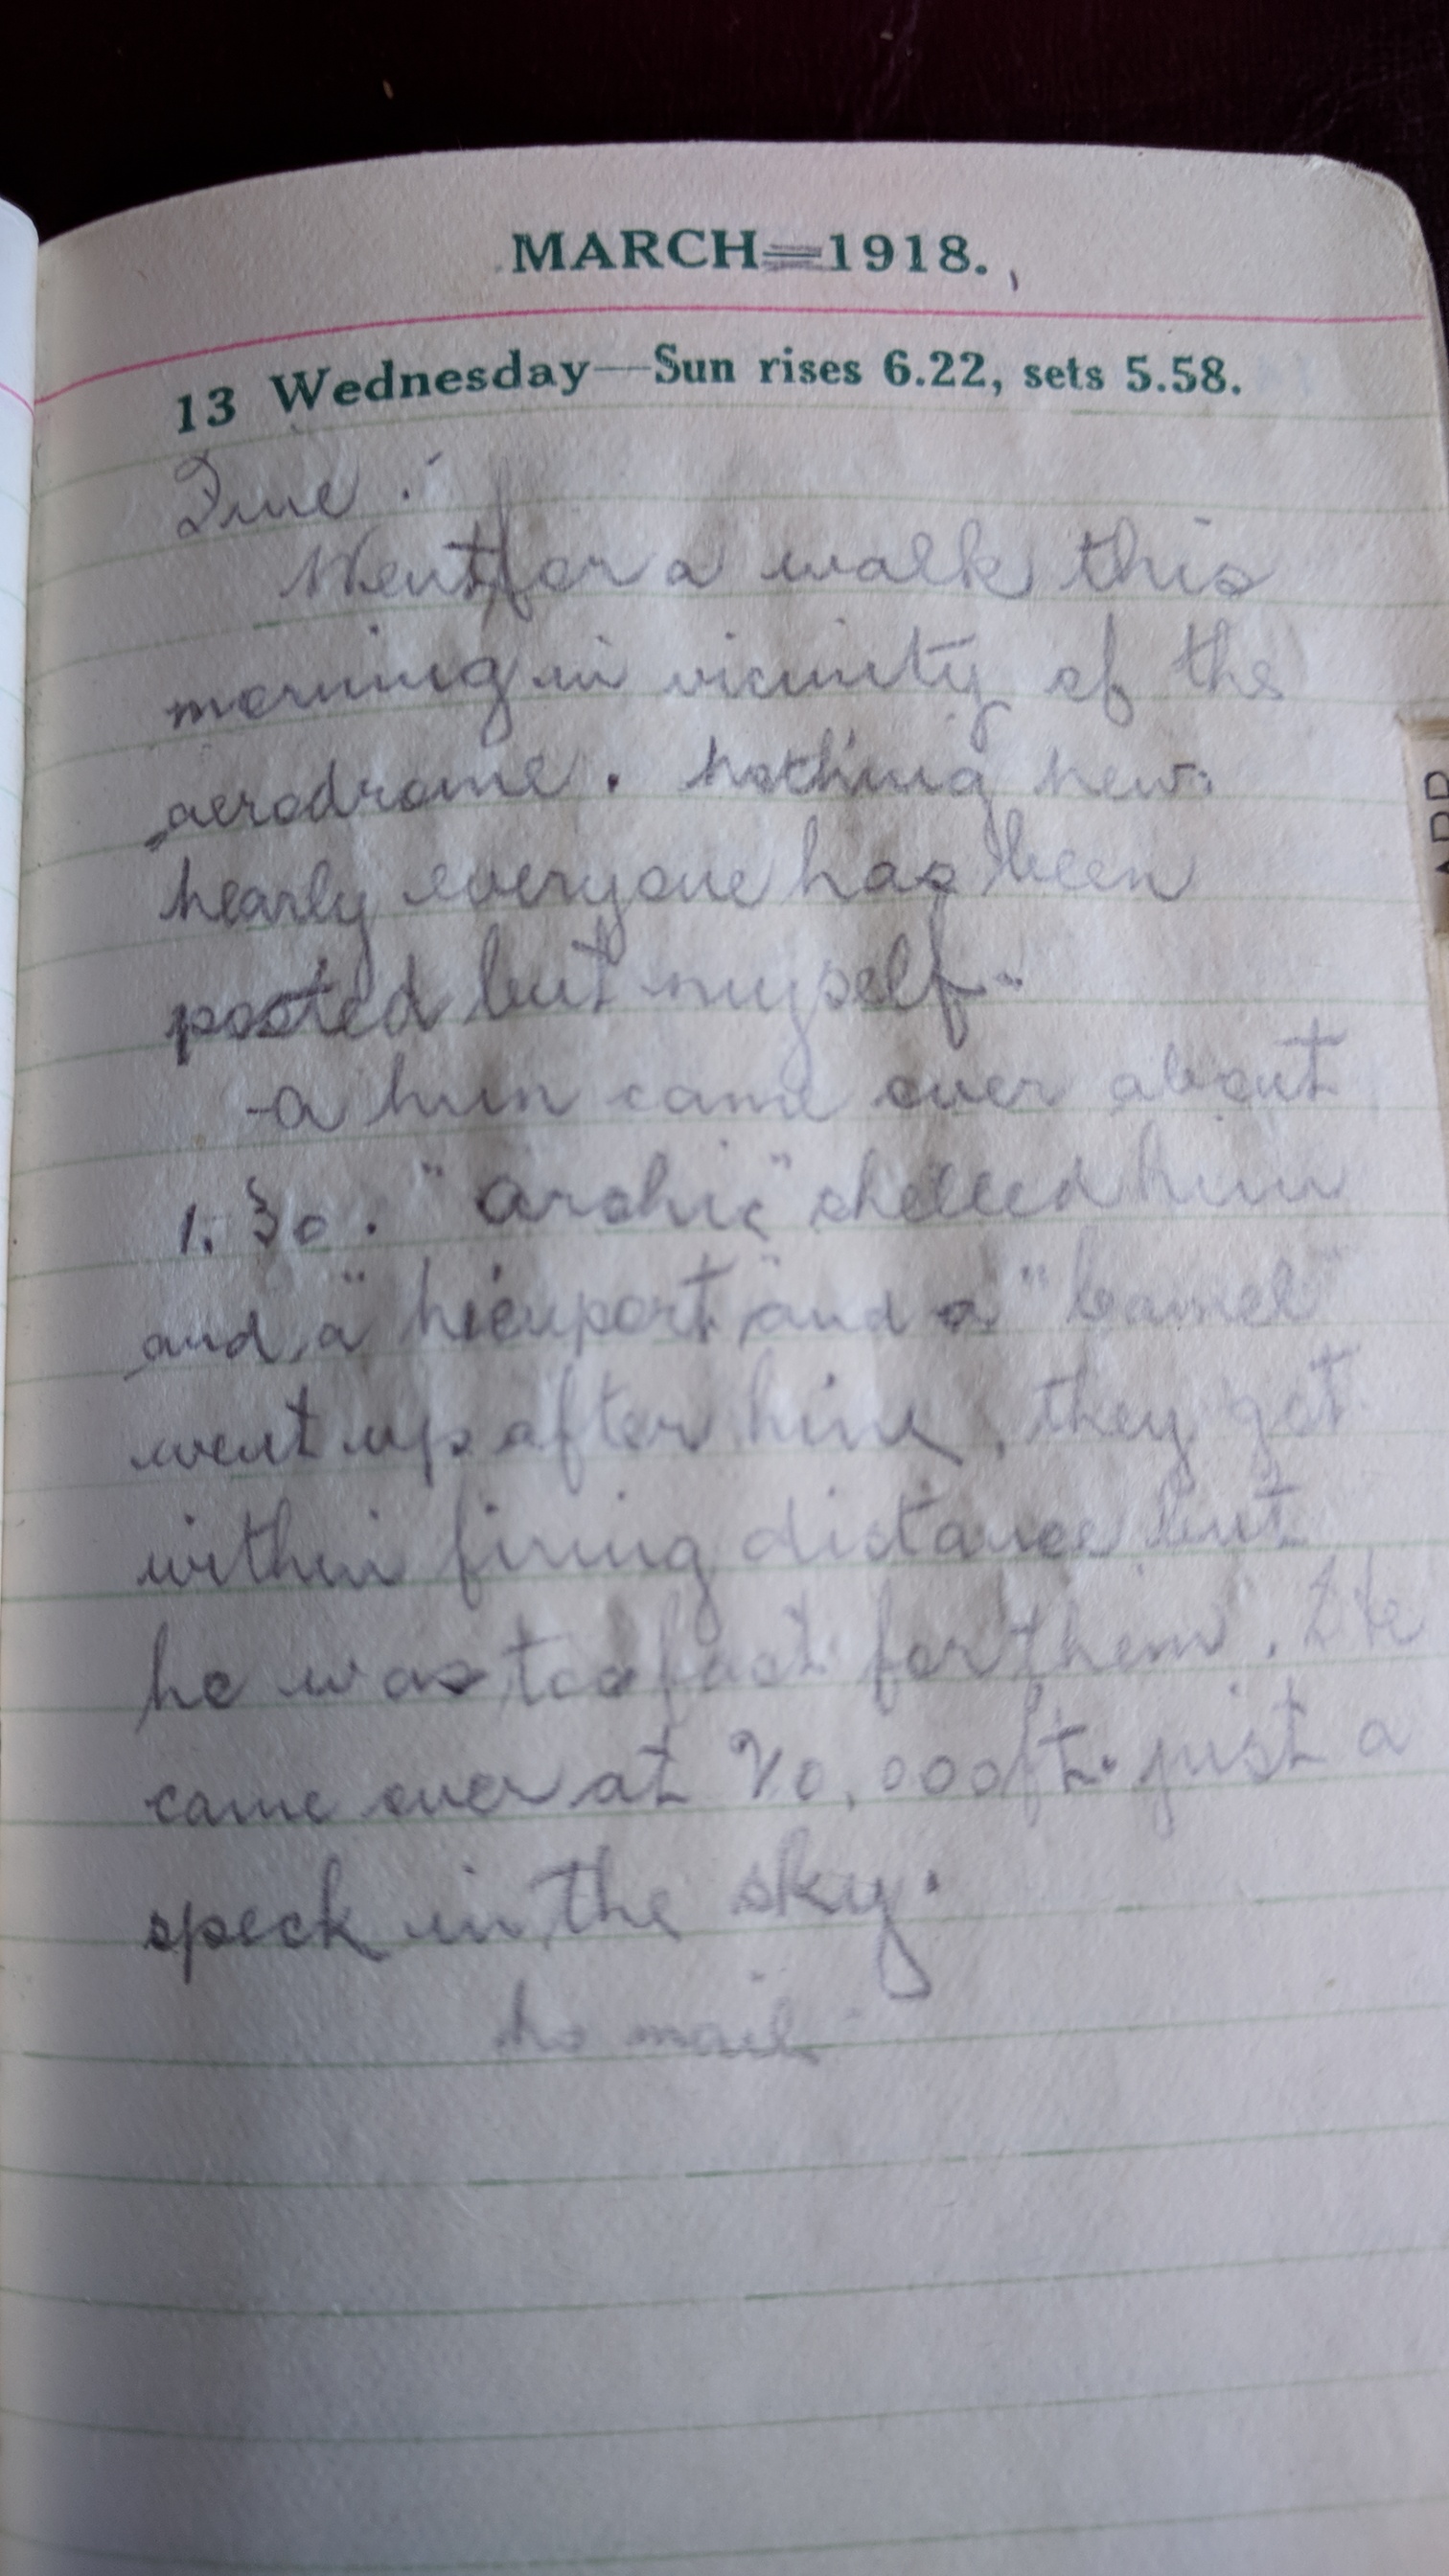 MARCH—1918.
13 Wednesday—Sun rises 6.22, sets 5.58.
Fine.
Went for a walk this
morning in vicinity of the
aerodrome. nothing new.
nearly everyone has been
posted but myself.
-a hun came over about
1.30. "Archie" shelled him
and a "nieuport" and a "camel"
went up after him, they got
within firing distance but
he was too fast for them. He
came over at 20,000 ft. just a
speck in the sky.
no mail